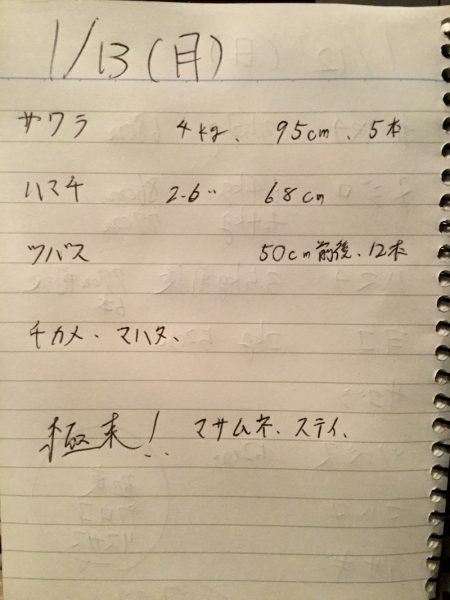 1/13(月)
サワラ 4kg、 95cm、5本
ハマチ 2.6〃 68cm
ツバス 50cm前後、12本
チカメ、マハタ、
極来! マサムネ、ステイ、